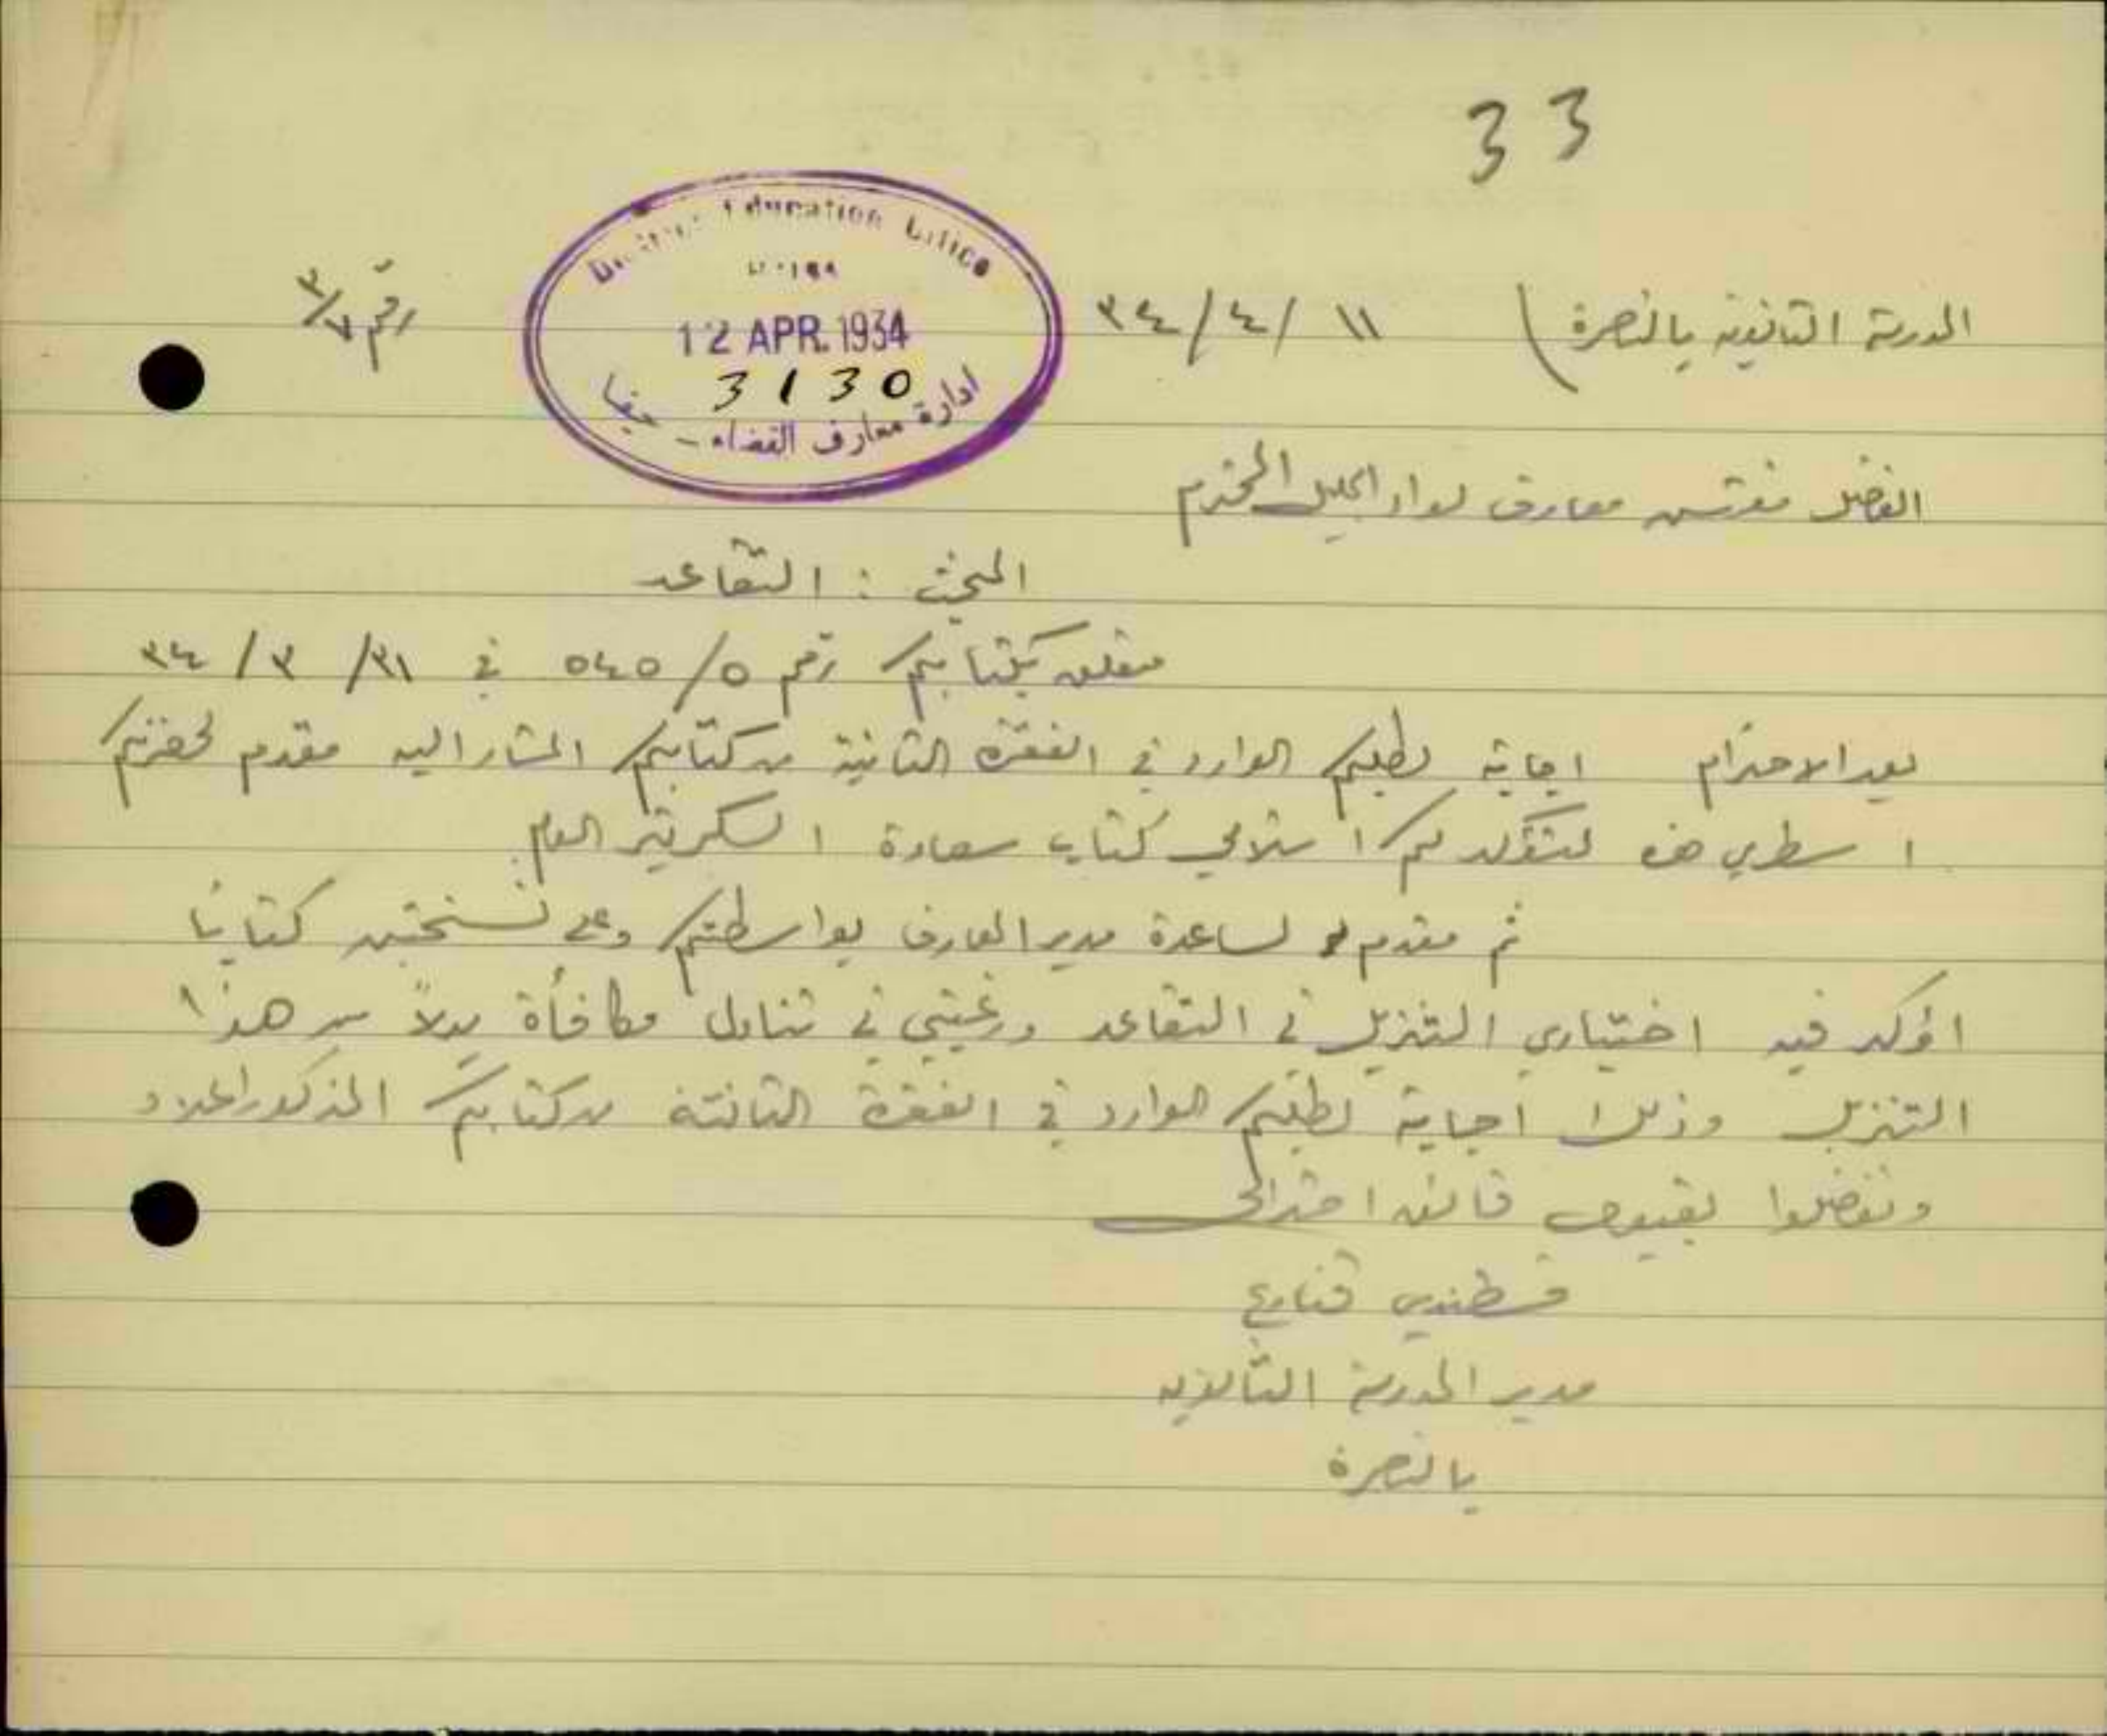 33
District Education Office
Haifa
12 APR. 1934
3130
ادارة معارف القضاء - حيفا
المدرسة الثانوية بالناصرة) ١١ /٤/ ٣٤ رقم ٣/٧
الفاضل مفتش معارف لواء الجليل المحترم
المبحث : التقاعد
متعلق بكتابكم رقم ٥/٥٤٥ في ٣١/ ٣/ ٣٤
بعد الاحترام اجابة لطلبكم الوارد في الفقرة الثانية من كتابكم المشار اليه مقدم لحضرتكم
اسطري هذه لتؤكد لكم استلامي كتاب سعادة السكرتير العام.
ثم مقدم لسعادة مدير المعارف بواسطتكم وعلى نسختين كتابا
اؤكد فيه اختياري التنزيل في التقاعد ورغبتي في تناول مكافأة بدلاً من هذا
التنزيل وذلك اجابة لطلبكم الوارد في الفقرة الثالثة من كتابكم المذكور اعلاه
وتفضلوا بقبول فائق احترامي
قسطندي قنازع
مدير المدرسة الثانوية
بالناصرة